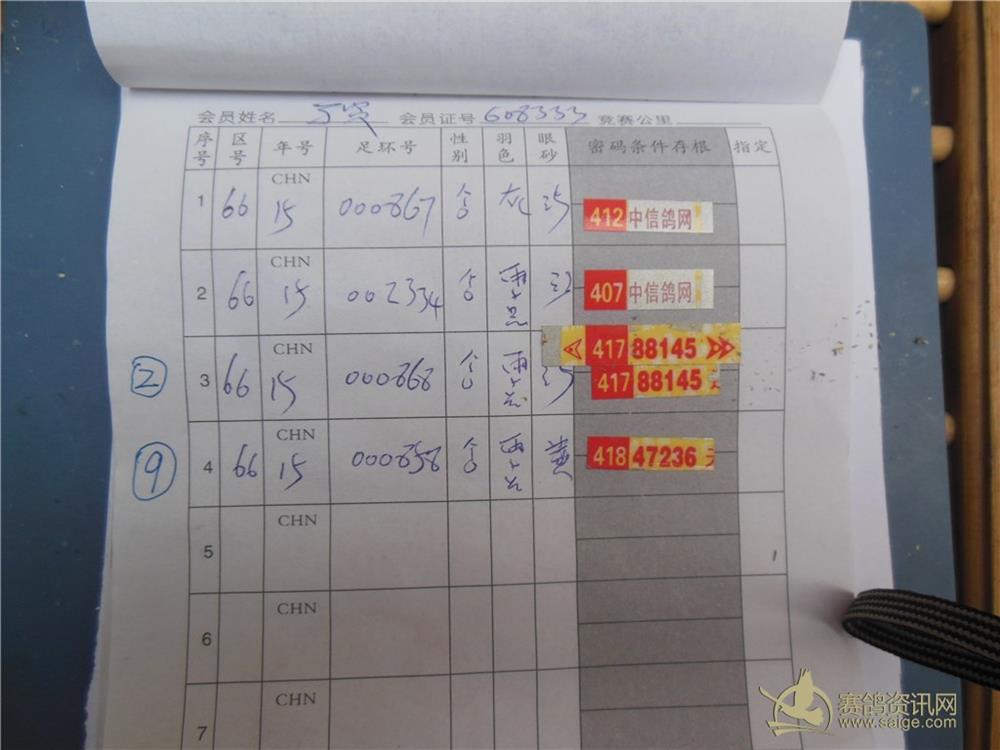 会员姓名 会员证号 608333 竞赛公里
序号 区号 年号 足环号 性别 羽色 眼砂 密码条件存根 指定
1 66 CHN 15 000867 灰 412 中信鸽网
2 66 CHN 15 002334 雨点 407 中信鸽网
417 88145
② 3 66 CHN 15 000868 雨点 417 88145
⑨ 4 66 CHN 15 000858 雨点 黄 418 47236 元
5 CHN
6 CHN
7 CHN
赛鸽资讯网
www.saige.com